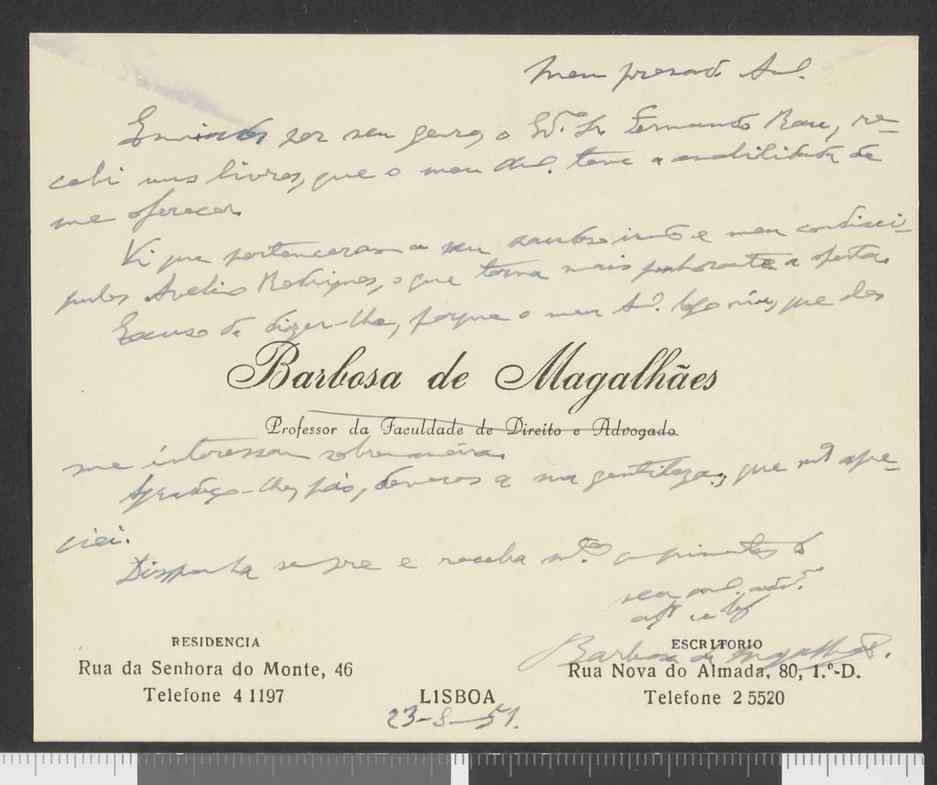 Meu presado Am.º
Enviados por seu genro, o Ex.mo Sr. Fernando Rau, re-
cebi uns livros, que o meu Am.º teve a amabilidade de
me oferecer.
Vi que pertenceram a seu irmão e meu condisci-
pulo Avelino Rodrigues, o que torna mais penhorante a oferta.
Escuso de dizer-lhe, porque o meu Am.º logo viu, que eles
Barbosa de Magalhães
Professor da Faculdade de Direito e Advogado
me interessam sobremaneira.
Agradeço-lhe, pois, deveras a sua gentileza, que m.to apre-
ciei.
Disponha sempre e receba m.tos cumprimentos do
seu am.º
Barbosa de Magalhães.
RESIDENCIA
Rua da Senhora do Monte, 46
Telefone 4 1197
LISBOA
23-8-51.
ESCRITORIO
Rua Nova do Almada, 80, 1.º-D.
Telefone 2 5520